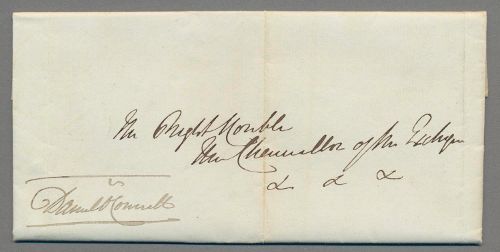 The Right Honble
The Chancellor of the Exchqer
& & &
Daniel O'Connell